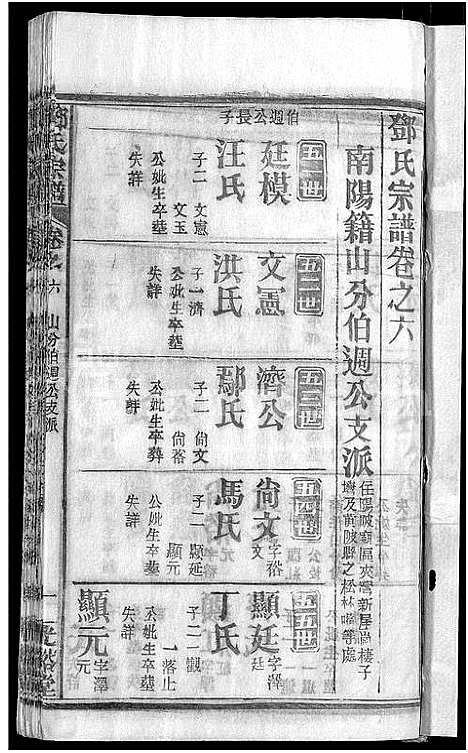 鄧氏宗譜卷之六
南陽籍山分伯週公支派
伯週公長子
五一世
廷模
汪氏
子二 文憲
文玉
公妣生卒塟
失詳
五二世
文憲
洪氏
子一濟
公妣生卒塟
失詳
五三世
濟公
鄢氏
子二 尙文
尙裕
公妣生卒葬
失詳
五四世
尙文
字裕文
馬氏
子二 顯延
顯元
公妣生卒塟
失詳
五五世
顯延
字澤廷
丁氏
子二 一觀
一落止
公妣生卒塟
失詳
顯元
字澤元
氏宗譜
卷之六
山分伯週公支派
一